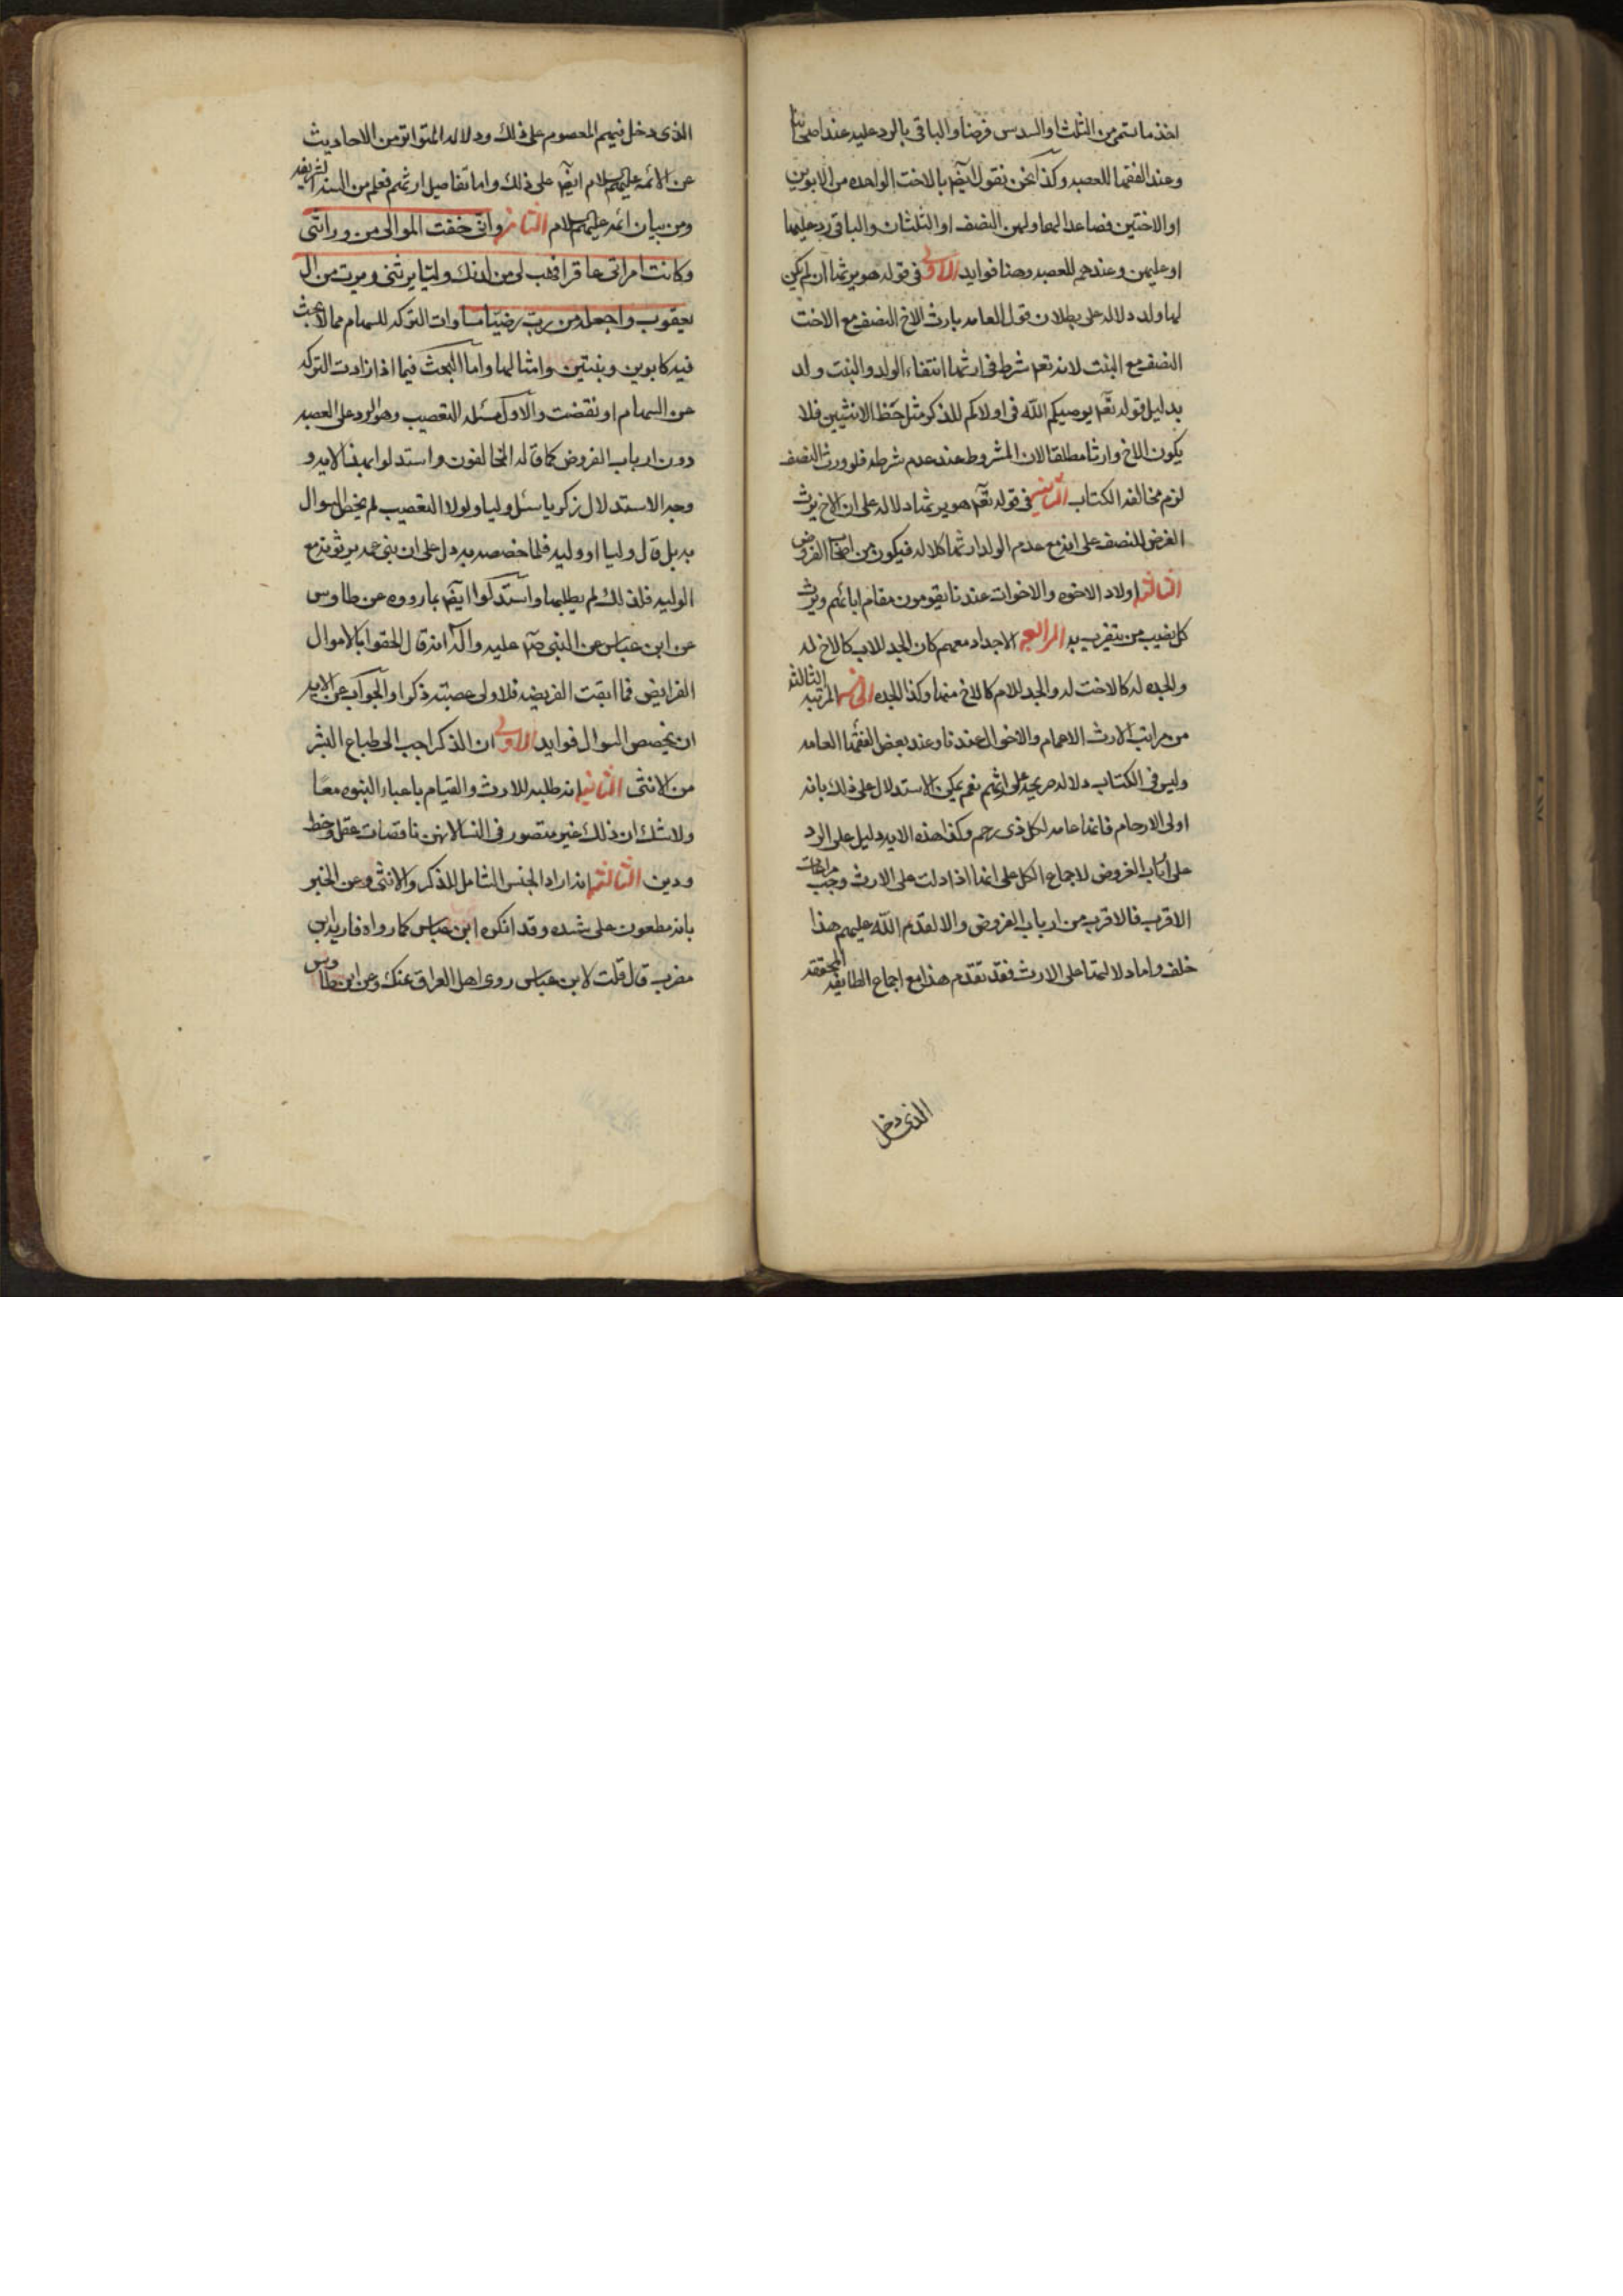 اخذ ما سمى من الثلث او السدس فرضا والباقى بالرد عليه عند اصحابنا
وعند الفقها للعصبه وكذا نحن نقول ايضم بالاخت الواحده من الابوين
او الاختين فصاعدا لها ولهن النصف او الثلثان والباقى رد عليها
او عليهن وعندهم للعصبه وهنا فوايد الاولى فى قوله هو يرثها ان لم يكن
لها ولد دلاله على بطلان قول العامه بارث الاخ النصف مع الاخت
النصف مع البنت لانه تعم شرط فى ارثها انتفاء الولد والبنت ولد
بدليل قوله تعم يوصيكم الله فى اولادكم للذكر مثل حظ الانثيين فلا
يكون الاخ وارثا مطلقا لان المشروط عند عدم شرطه فلو ورث النصف
لزم مخالفه الكتاب الثانيه فى قوله تعم هو يرثها دلاله على ان الاخ يرث
الفرض النصف على انه مع عدم الولد ارثها كلاله فيكون من اصحاب الفروض
الثالثه اولاد الاخوه والاخوات عندنا يقومون مقام ابائهم ويرث
كل نصيب من يتقرب به الرابعه الاجداد معهم كان الجد للاب كالاخ له
والجده له كالاخت له والجد للام كالاخ منها وكذا الجده الخامسه المرتبه الثالثه
من مراتب الارث الاعمام والاخوال عندنا وعند بعض الفقها العامه
وليس فى الكتاب دلاله صريحه على ارثهم نعم يمكن الاستدلال على ذلك بانه
اولى الارحام فانها عامه لكل ذى رحم وكذا هذه الايه دليل على الرد
على ارباب الفروض لاجماع الكل على انها اذا دلت على الارث وجب مراعات
الاقرب فالاقرب من ارباب الفروض والا لقدم الله عليهم هذا
خلف واما دلالتها على الارث فقد تقدم هذا مع اجماع الطايفه المحققه
الذى دخل
الذى دخل فيهم المعصوم على ذلك ودلاله المتواتر من الاحاديث
عن الائمه عليهم السلام ايضم على ذلك واما تفاصيل ارثهم فعلم من السنه الشريفه
ومن بيان ائمه عليهم السلام الثامنه وانى خفت الموالى من ورائى
وكانت امراتى عاقرا فهب لى من لدنك وليا يرثنى ويرث من ال
يعقوب واجعله رب رضيا مساوات التركه للسهام مما لا بحث
فيه كابوين وبنتين وامثالهما واما البحث فيما اذا زادت التركه
عن السهام او نقصت والاول مسئله التعصيب وهو الرد على العصبه
دون ارباب الفروض كما قاله المخالفون واستدلوا بهذا الايه و
وجه الاستدلال زكريا سئل وليا ولولا التعصيب لم يخص السوال
به بل قال وليا او وليه فلما خصصه به دل على ان بنى عمه يرثونه مع
الوليه فلذلك لم يطلبها واستدلوا ايضم بما رووه عن طاوس
عن ابن عباس عن النبى صم عليه واله انه قال الحقوا بالاموال
الفرايض فما ابقت الفريضه فلاولى عصبته ذكر او الجواب عن الايه
ان تخصيص السوال فوايد الاولى ان الذكر احب الى طباع البشر
من الانثى الثانيه انه طلبه للارث والقيام باعباء النبوه معًا
ولا شك ان ذلك غير متصور فى النسا لانهن ناقصات عقل وحظ
ودين الثالثه انه اراد الجنس الشامل للذكر والانثى وعن الخبر
بانه مطعون على سنده وقد انكره ابن عباس كما رواه
مضرب قال قلت لابن عباس روى اهل العراق عنك وعن ابن طاوس